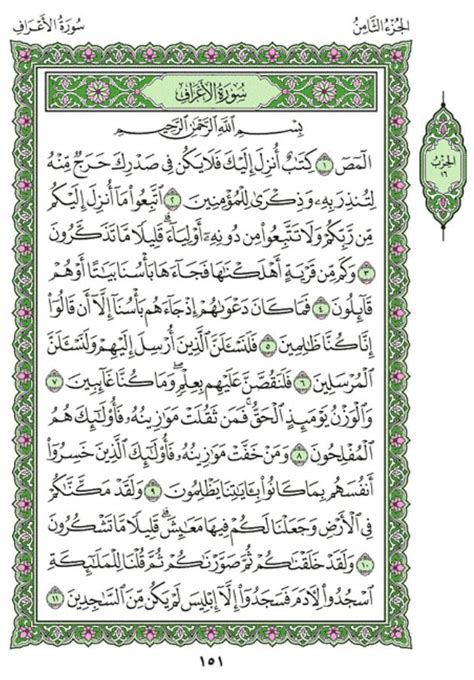 سُورَةُ الأَعْرَافِ
الجُزْءُ الثَّامِنُ
سُورَةُ الأَعْرَافِ
بِسْمِ اللَّهِ الرَّحْمَٰنِ الرَّحِيمِ
الحِزْبُ
١٦
الٓمٓصٓ ١ كِتَٰبٌ أُنزِلَ إِلَيْكَ فَلَا يَكُن فِي صَدْرِكَ حَرَجٌ مِّنْهُ
لِتُنذِرَ بِهِۦ وَذِكْرَىٰ لِلْمُؤْمِنِينَ ٢ ٱتَّبِعُوا۟ مَآ أُنزِلَ إِلَيْكُم
مِّن رَّبِّكُمْ وَلَا تَتَّبِعُوا۟ مِن دُونِهِۦٓ أَوْلِيَآءَ ۗ قَلِيلًا مَّا تَذَكَّرُونَ
٣ وَكَم مِّن قَرْيَةٍ أَهْلَكْنَٰهَا فَجَآءَهَا بَأْسُنَا بَيَٰتًا أَوْ هُمْ
قَآئِلُونَ ٤ فَمَا كَانَ دَعْوَىٰهُمْ إِذْ جَآءَهُم بَأْسُنَآ إِلَّآ أَن قَالُوٓا۟
إِنَّا كُنَّا ظَٰلِمِينَ ٥ فَلَنَسْـَٔلَنَّ ٱلَّذِينَ أُرْسِلَ إِلَيْهِمْ وَلَنَسْـَٔلَنَّ
ٱلْمُرْسَلِينَ ٦ فَلَنَقُصَّنَّ عَلَيْهِم بِعِلْمٍ ۖ وَمَا كُنَّا غَآئِبِينَ ٧
وَٱلْوَزْنُ يَوْمَئِذٍ ٱلْحَقُّ ۚ فَمَن ثَقُلَتْ مَوَٰزِينُهُۥ فَأُو۟لَٰٓئِكَ هُمُ
ٱلْمُفْلِحُونَ ٨ وَمَنْ خَفَّتْ مَوَٰزِينُهُۥ فَأُو۟لَٰٓئِكَ ٱلَّذِينَ خَسِرُوٓا۟
أَنفُسَهُم بِمَا كَانُوا۟ بِـَٔايَٰتِنَا يَظْلِمُونَ ٩ وَلَقَدْ مَكَّنَّٰكُمْ
فِي ٱلْأَرْضِ وَجَعَلْنَا لَكُمْ فِيهَا مَعَٰيِشَ ۗ قَلِيلًا مَّا تَشْكُرُونَ
١٠ وَلَقَدْ خَلَقْنَٰكُمْ ثُمَّ صَوَّرْنَٰكُمْ ثُمَّ قُلْنَا لِلْمَلَٰٓئِكَةِ
ٱسْجُدُوا۟ لِـَٔادَمَ فَسَجَدُوٓا۟ إِلَّآ إِبْلِيسَ لَمْ يَكُن مِّنَ ٱلسَّٰجِدِينَ ١١
١٥١